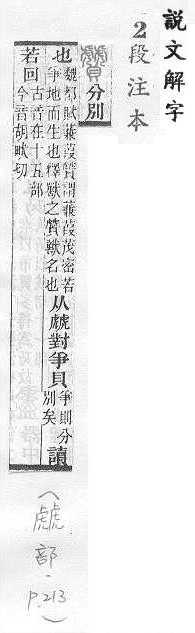 說文解字
2段注本
贙 分別
也 魏都賦蒹葭贙謂蒹葭茂密若爭地而生也釋獸之贙獸名也 从虤對爭貝 爭則分別矣 讀
若回 古音在十五部今音胡畎切
(虤部·P.213)